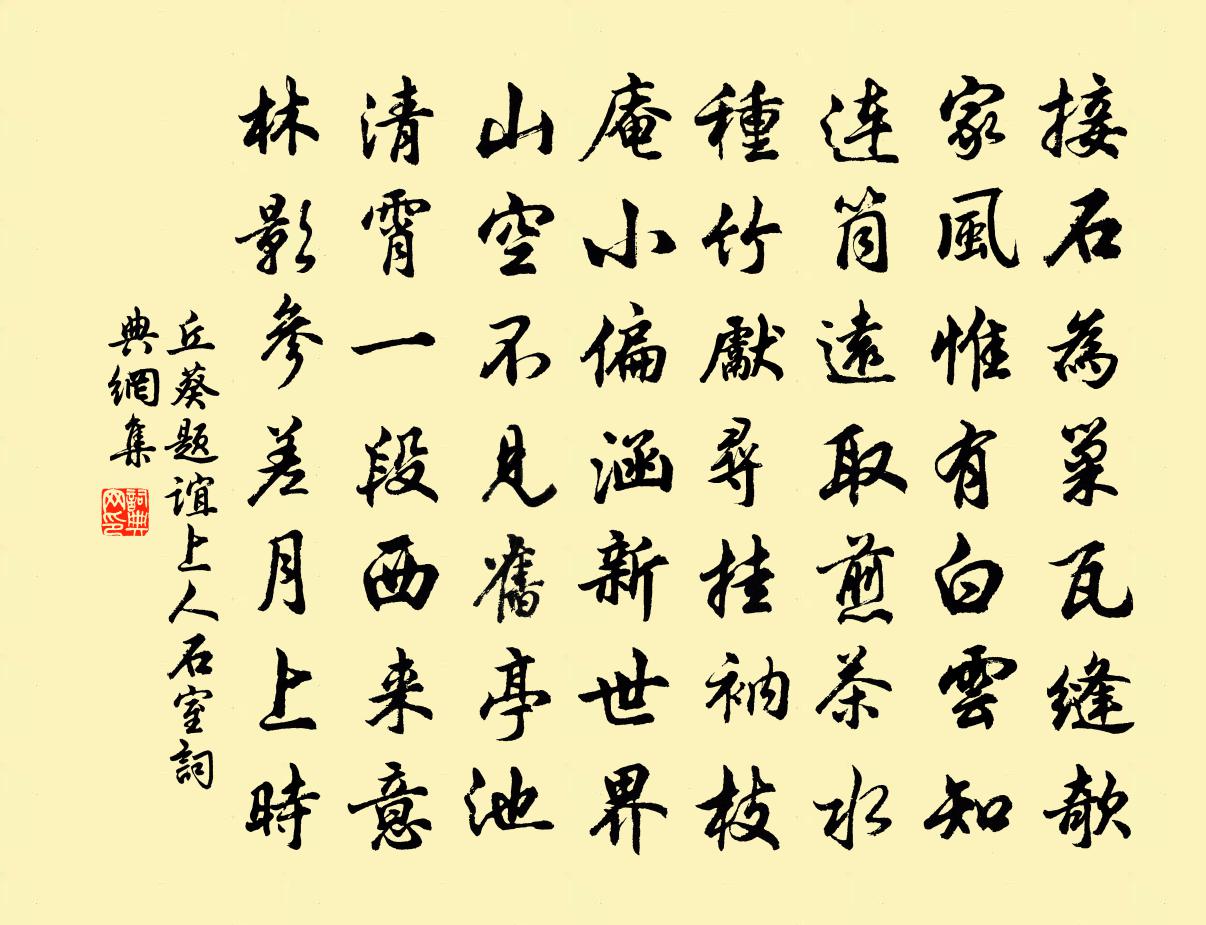 接石為巢瓦縫欹
家風惟有白雲知
連筒遠取煎茶水
種竹獻尋挂衲枝
庵小偏涵新世界
山空不見舊亭池
清霄一段西来意
林影參差月上時
丘葵题谊上人石室詞
典網集
詞典网印